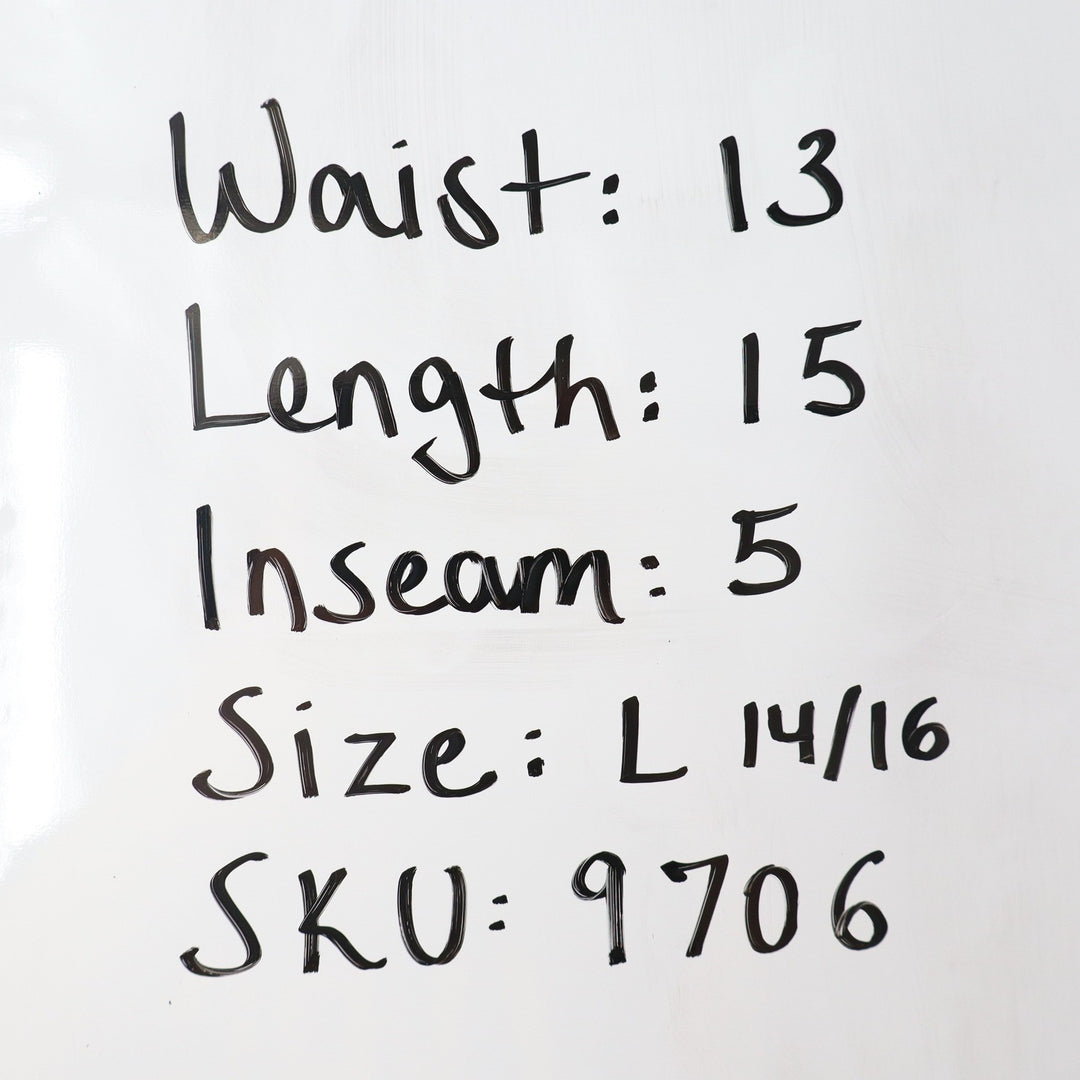 Waist: 13
Length: 15
Inseam: 5
Size: L 14/16
SKU: 9706